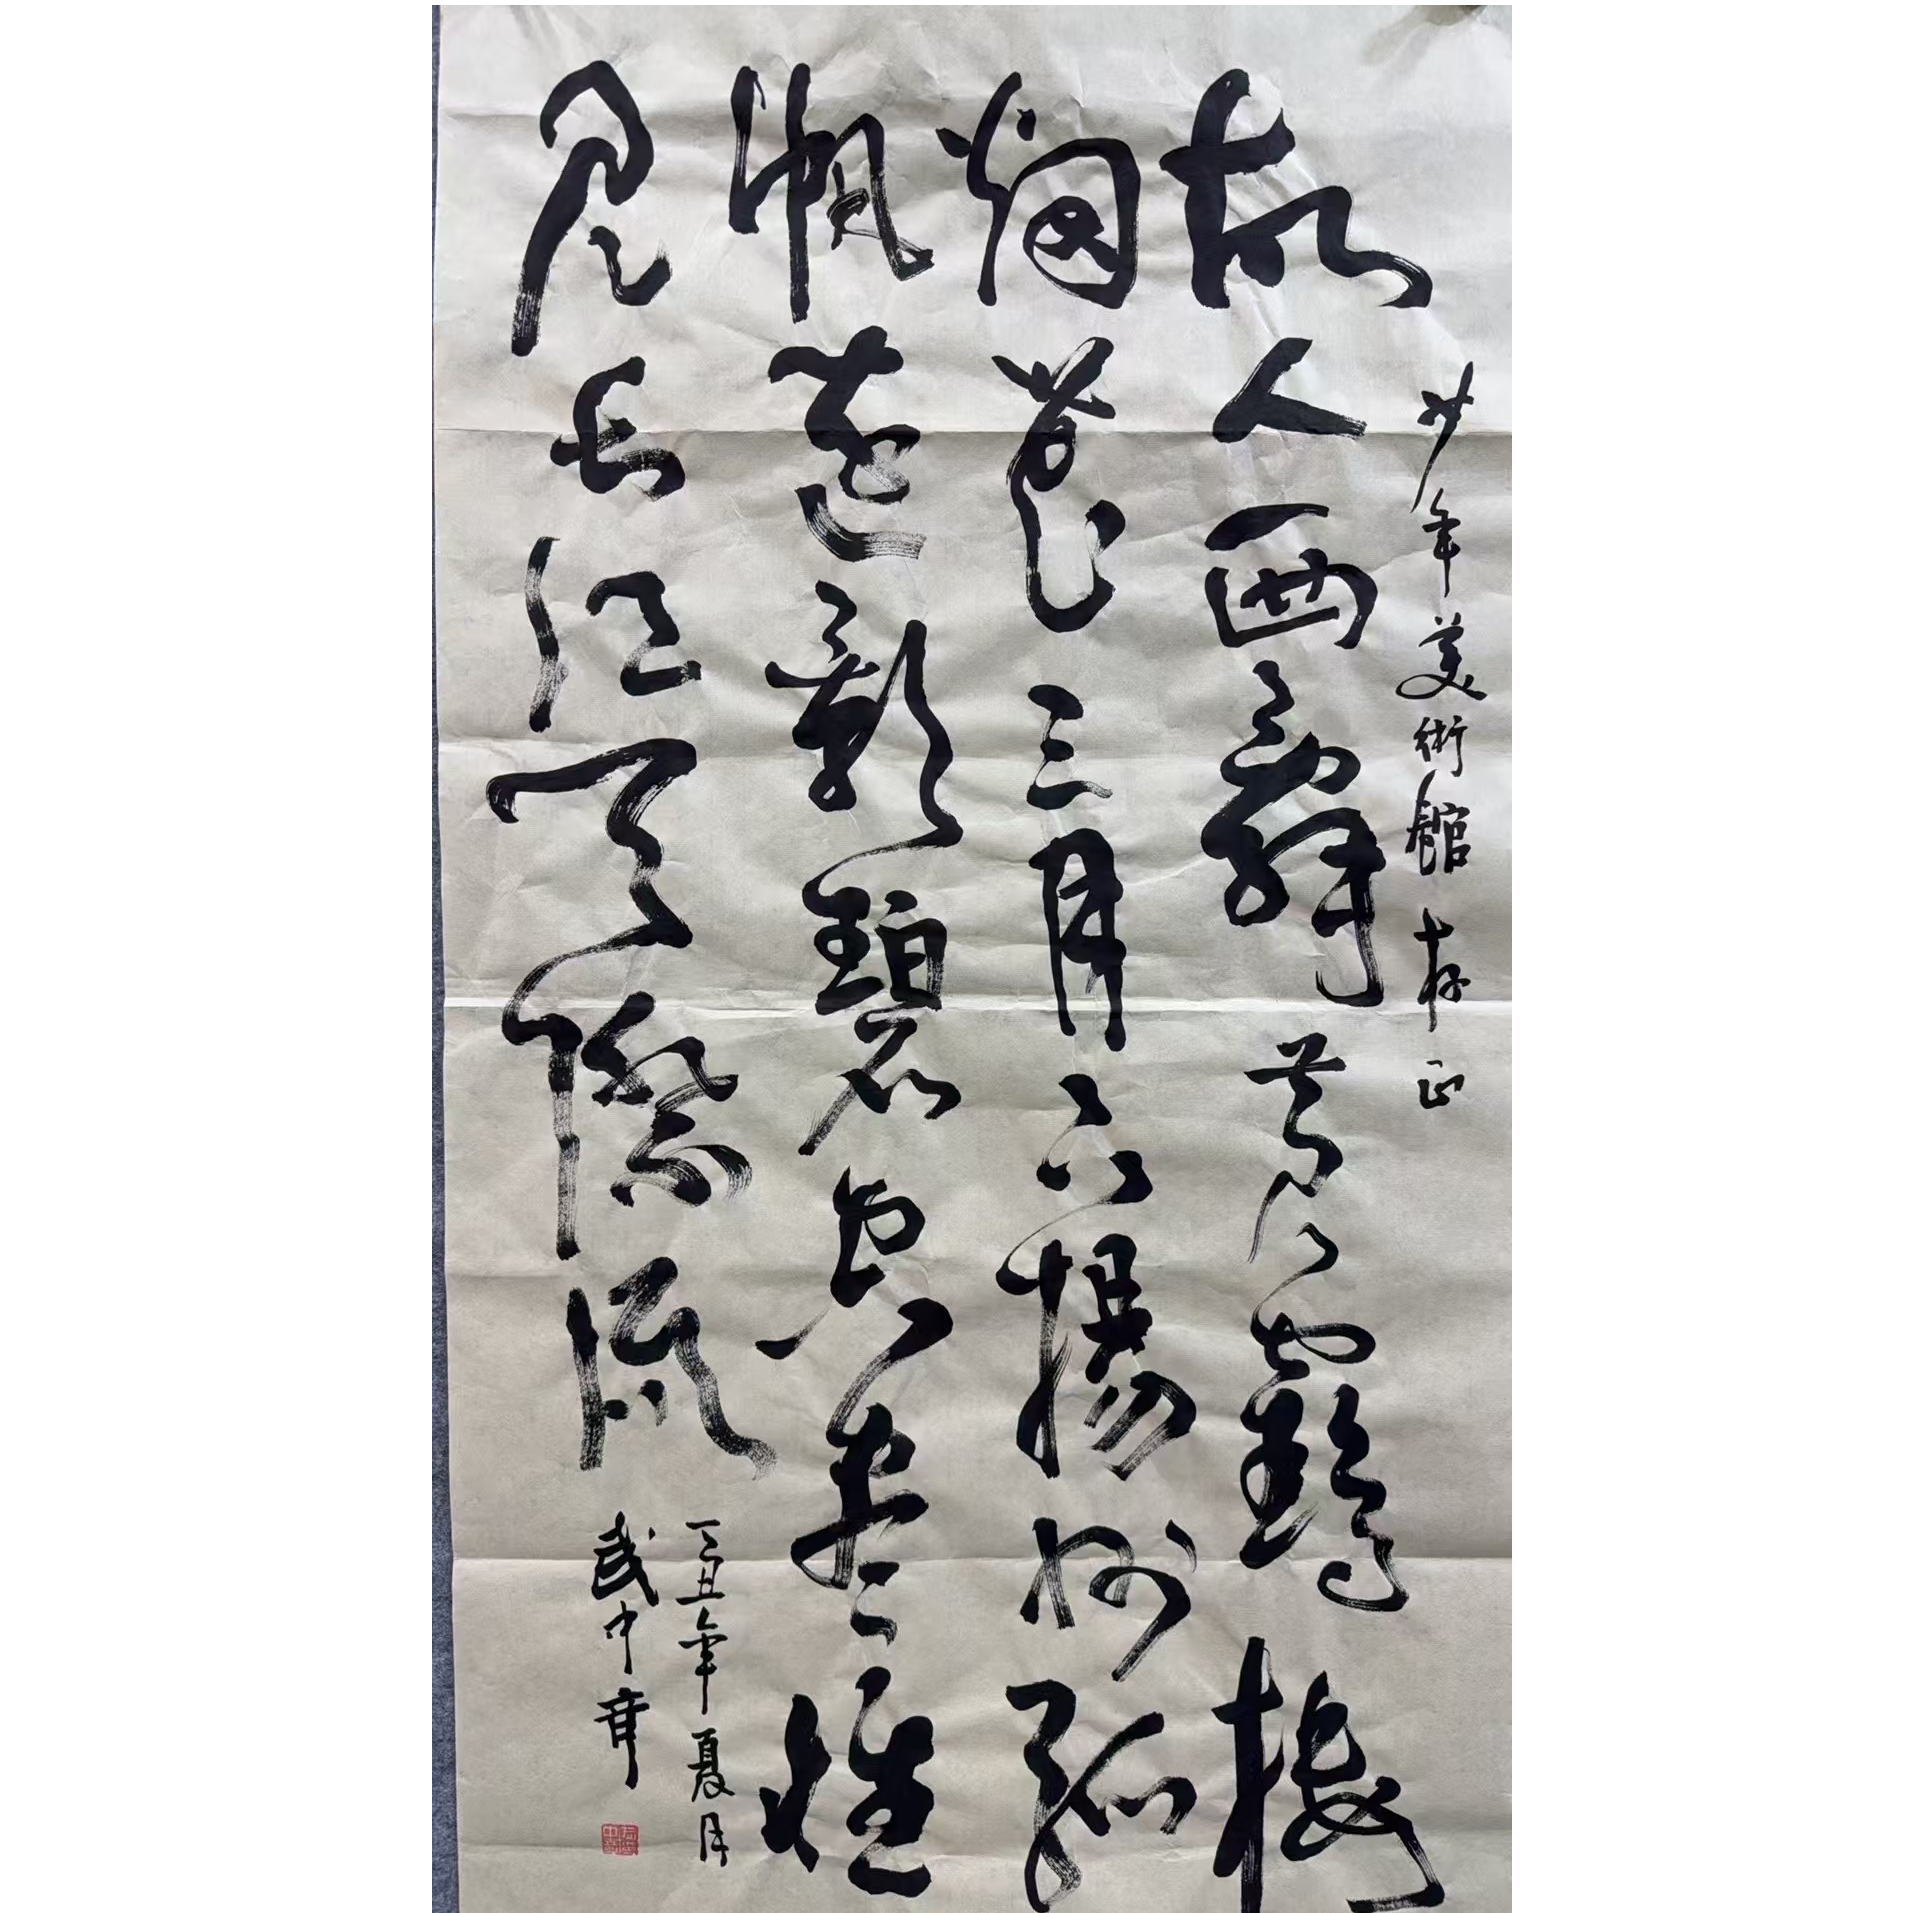 少年美術館存正
故人西辭黄鶴樓
烟花三月下揚州孤
帆遠影碧空盡惟
見長江天際流
丁丑年夏月
武中奇